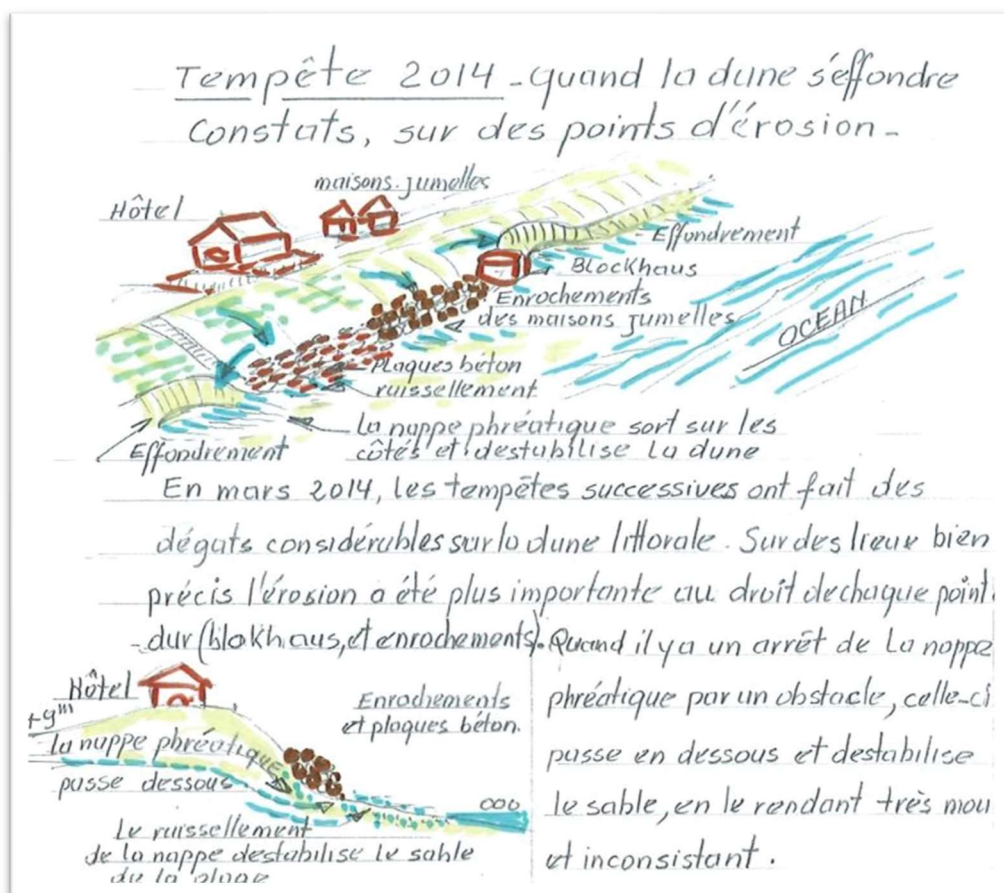 Tempête 2014 - quand la dune s'effondre
Constats, sur des points d'érosion -
maisons jumelles
Hôtel
Effondrement
Blockhaus
Enrochements
des maisons jumelles
OCEAN
Plaques béton
ruissellement
La nappe phréatique sort sur les
côtés et destabilise la dune
Effondrement
En mars 2014, les tempêtes successives ont fait des
dégats considérables sur la dune littorale. Sur des lieux bien
précis l'érosion a été plus importante au droit de chaque point
- dur (blokhaus, et enrochements). Quand il y a un arrêt de la nappe
phréatique par un obstacle, celle-ci
passe en dessous et destabilise
le sable, en le rendant très mou
et inconsistant.
Hôtel
+9m
Enrochements
et plaques béton.
la nappe phréatique
passe dessous
000
Le ruissellement
de la nappe destabilise le sable
de la plage